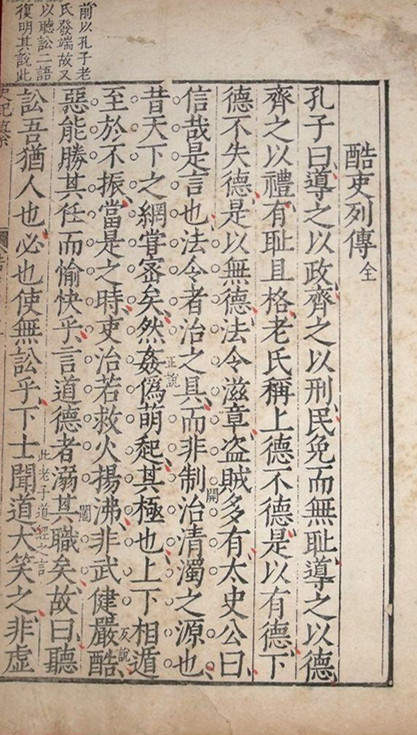 前以孔子老
氏發端故又
以聽訟二語
復明其說此
酷吏列傳全
孔子曰導之以政齊之以刑民免而無耻導之以德
齊之以禮有耻且格老氏稱上德不德是以有德下
德不失德是以無德法令滋章盗賊多有太史公曰
信哉是言也法令者治之具而非制治清濁之源也
開
昔天下之網嘗密矣然姦僞萌起其極也上下相遁
正說
至於不振當是之時吏治若救火揚沸非武健嚴酷
反說
惡能勝其任而愉快乎言道德者溺其職矣故曰聽
闔
訟吾猶人也必也使無訟乎下士聞道大笑之非虚
此老子道經之言